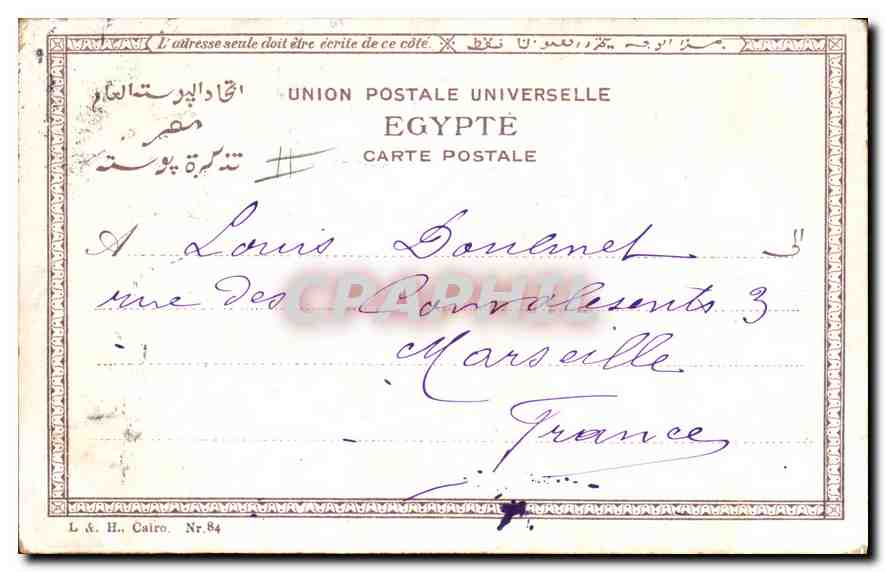 L'adresse seule doit être écrite de ce côté.
اتحاد البوسته العام
مصر
تذكرة بوسته
UNION POSTALE UNIVERSELLE
EGYPTE
CARTE POSTALE
A Louis
الى
rue des Convalesents 3
Marseille
France
CPARAMA
L & H., Cairo. Nr. 84